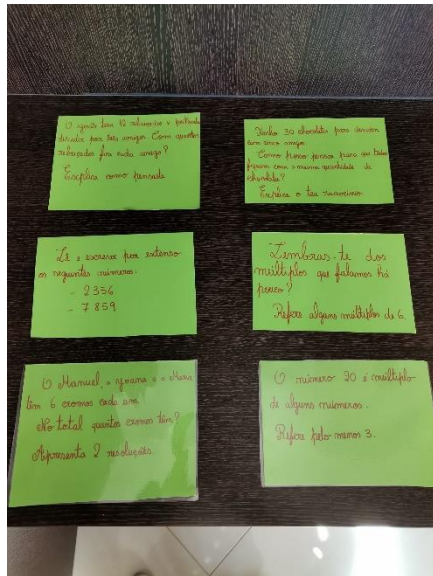 O Agnés tem 12 rebuçados e pretende
dividir por três amigos. Com quantos
rebuçados fica cada amigo?
Explica como pensaste
Tenho 30 chocolates para dividir
com cinco amigos.
Como posso pensar para que todos
fiquem com a mesma quantidade de
chocolate?
Explica o teu raciocínio
Lê e escreve por extenso
os seguintes números.
- 2356
- 7859
Lembras-te dos
múltiplos que falamos há
pouco?
Refere alguns múltiplos de 6.
O Manuel, a Joana e a Maria
têm 6 cromos cada um.
No total quantos cromos têm?
Apresenta 2 resoluções.
O número 20 é múltiplo
de alguns números.
Refere pelo menos 3.